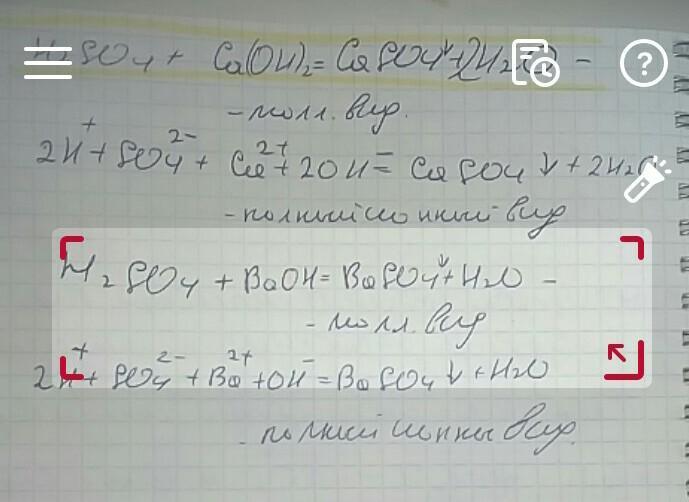 H₂SO₄ + Ca(OH)₂ = CaSO₄↓ + 2H₂O -
- молл. вид.
2H⁺ + SO₄²⁻ + Ca²⁺ + 2OH⁻ = CaSO₄↓ + 2H₂O
- полный ионный вид
H₂SO₄ + BaOH = BaSO₄↓ + H₂O -
- молл. вид
2H⁺ + SO₄²⁻ + Ba²⁺ + OH⁻ = BaSO₄↓ + H₂O
- полный ионны вид.